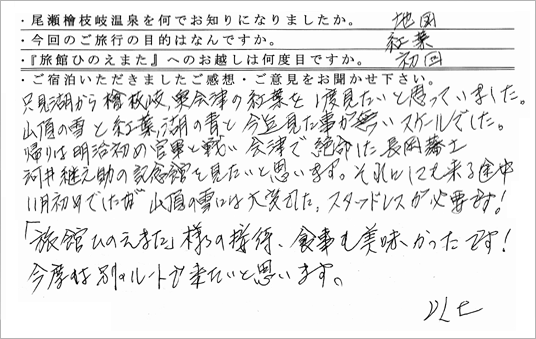 ・尾瀬檜枝岐温泉を何でお知りになりましたか。 地図
・今回のご旅行の目的はなんですか。 紅葉
・『旅館ひのえまた』へのお越しは何度目ですか。 初回
・ご宿泊いただきましたご感想・ご意見をお聞かせ下さい。
只見湖から檜枝岐、奥会津の紅葉を1度見たいと思っていました。
山頂の雪と紅葉、湖の青と今迄見た事が無いスケールでした。
帰りは明治初め官軍と戦い会津で絶命した長岡藩士
河井継之助の記念館を見たいと思います。それにしても来る途中
11月初めでしたが山頂の雪には大変でした、スタッドレスが必要です!
「旅館ひのえまた」様の接待、食事も美味かったです!
今度は別ルートで来たいと思います。